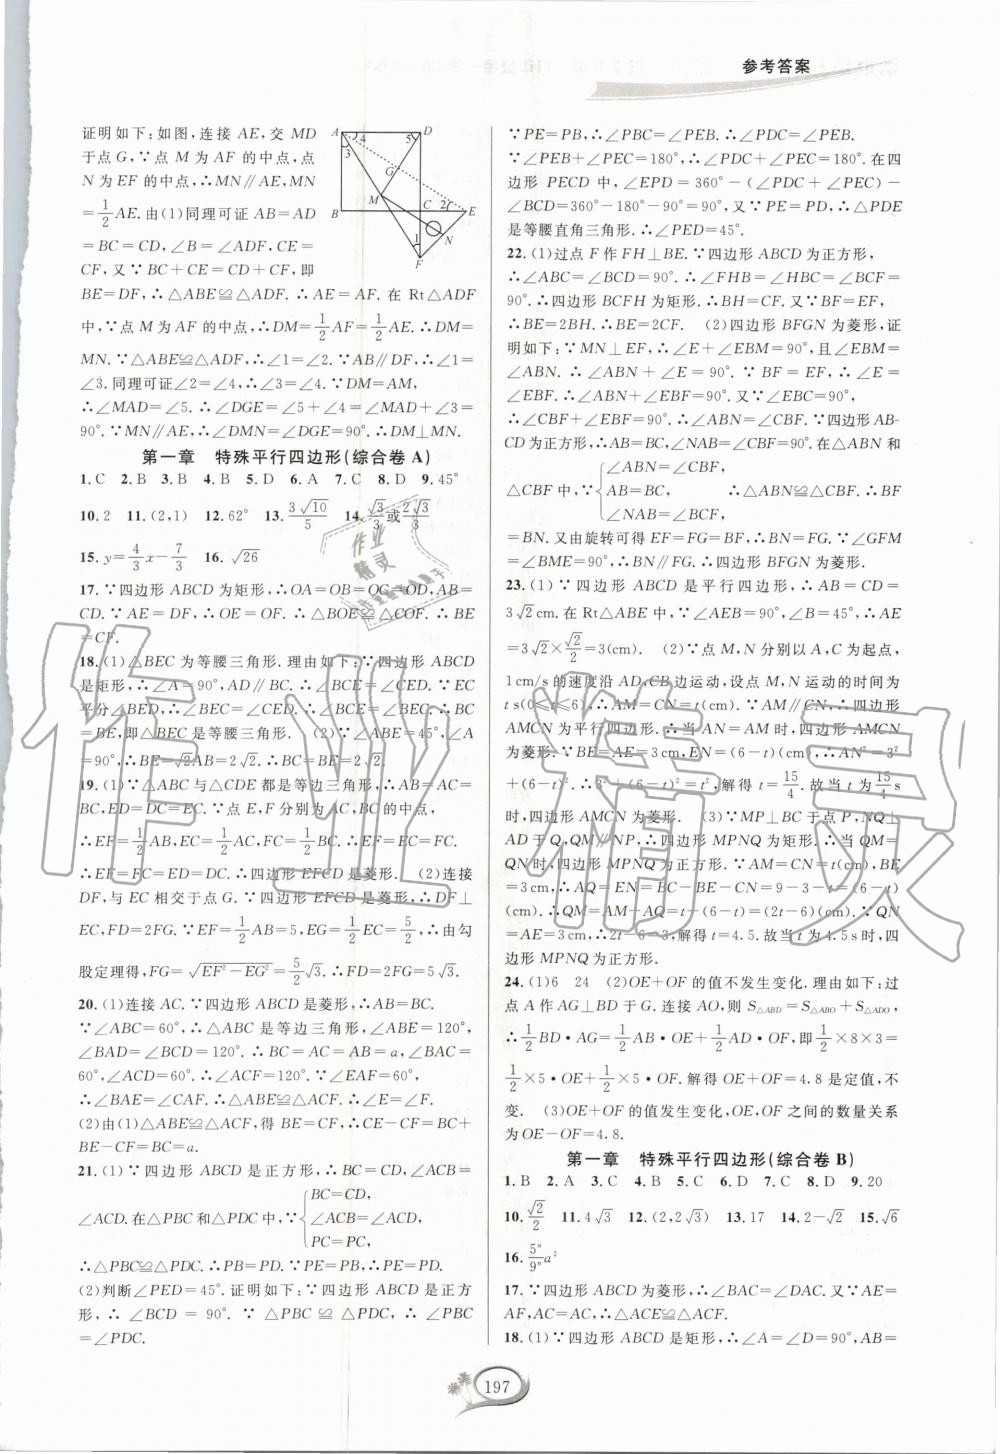 参考答案
证明如下:如图,连接 AE,交 MD
于点 G,∵点 M 为 AF 的中点,点
N 为 EF 的中点,∴MN∥AE,MN
=1/2AE.由(1)同理可证 AB=AD
=BC=CD,∠B=∠ADF,CE=
CF,又∵BC+CE=CD+CF,即
BE=DF,∴△ABE≌△ADF.∴AE=AF.在 Rt△ADF
中,∵点 M 为 AF 的中点,∴DM=1/2AF=1/2AE.∴DM=
MN.∵△ABE≌△ADF,∴∠1=∠2.∵AB∥DF,∴∠1=
∠3.同理可证∠2=∠4,∴∠3=∠4.∵DM=AM,
∴∠MAD=∠5.∴∠DGE=∠5+∠4=∠MAD+∠3=
90°.∵MN∥AE,∴∠DMN=∠DGE=90°.∴DM⊥MN.
A 4 5 D
3
G
M
B C 2 E
N
1
F
第一章 特殊平行四边形(综合卷 A)
1.C 2.B 3.B 4.B 5.D 6.A 7.C 8.D 9.45°
10.2 11.(2,1) 12.62° 13.3√10/5 14.√3/3或2√3/3
15.y=4/3x-7/3 16.√26
17.∵四边形 ABCD 为矩形,∴OA=OB=OC=OD,AB=
CD.∵AE=DF,∴OE=OF.∴△BOE≌△COF.∴BE
=CF.
18.(1)△BEC 为等腰三角形.理由如下:∵四边形 ABCD
是矩形,∴∠A=90°,AD∥BC.∴∠BCE=∠CED.∵EC
平分∠BED,∴∠BEC=∠CED.∴∠BCE=∠BEC.∴BC
=BE,即△BEC 为等腰三角形. (2)∵∠ABE=45°,∠A=
90°,∴BE=√2AB=2.∴BC=BE=2.
19.(1)∵△ABC 与△CDE 都是等边三角形,∴AB=AC=
BC,ED=DC=EC.∵点 E,F 分别为 AC,BC 的中点,
∴EF=1/2AB,EC=1/2AC,FC=1/2BC.∴EF=EC=FC.
∴EF=FC=ED=DC.∴四边形 EFCD 是菱形. (2)连接
DF,与 EC 相交于点 G.∵四边形 EFCD 是菱形,∴DF⊥
EC,FD=2FG.∵EF=1/2AB=5,EG=1/2EC=5/2,∴由勾
股定理得,FG=√EF²-EG²=5/2√3.∴FD=2FG=5√3.
20.(1)连接 AC.∵四边形 ABCD 是菱形,∴AB=BC.
∵∠ABC=60°,∴△ABC 是等边三角形,∴∠ABE=120°,
∠BAD=∠BCD=120°.∴BC=AC=AB=a,∠BAC=
60°,∠ACD=60°.∴∠ACF=120°.∵∠EAF=60°,
∴∠BAE=∠CAF.∴△ABE≌△ACF.∴∠E=∠F.
(2)由(1)△ABE≌△ACF,得 BE=CF,∴CE-CF=BC+
BE-CF=BC=a.
21.(1)∵四边形 ABCD 是正方形,∴BC=CD,∠ACB=
∠ACD.在△PBC 和△PDC 中,∵{BC=CD,
∠ACB=∠ACD,
PC=PC,
∴△PBC≌△PDC.∴PB=PD.∵PE=PB,∴PE=PD.
(2)判断∠PED=45°.证明如下:∵四边形 ABCD 是正方
形,∴∠BCD=90°.∵△PBC≌△PDC,∴∠PBC
=∠PDC.
∵PE=PB,∴∠PBC=∠PEB.∴∠PDC=∠PEB.
∵∠PEB+∠PEC=180°,∴∠PDC+∠PEC=180°.在四
边形 PECD 中,∠EPD=360°-(∠PDC+∠PEC)-
∠BCD=360°-180°-90°=90°,又∵PE=PD,∴△PDE
是等腰直角三角形.∴∠PED=45°.
22.(1)过点 F 作 FH⊥BE.∵四边形 ABCD 为正方形,
∴∠ABC=∠BCD=90°.∴∠FHB=∠HBC=∠BCF=
90°.∴四边形 BCFH 为矩形.∴BH=CF.又∵BF=EF,
∴BE=2BH.∴BE=2CF. (2)四边形 BFGN 为菱形,证
明如下:∵MN⊥EF,∴∠E+∠EBM=90°,且∠EBM=
∠ABN.∴∠ABN+∠E=90°.∵BF=EF,∴∠E=
∠EBF.∴∠ABN+∠EBF=90°.又∵∠EBC=90°,
∴∠CBF+∠EBF=90°.∴∠ABN=∠CBF.∵四边形 AB-
CD 为正方形,∴AB=BC,∠NAB=∠CBF=90°.在△ABN 和
△CBF 中,∵{∠ABN=∠CBF,
AB=BC,
∠NAB=∠BCF, ∴△ABN≌△CBF.∴BF
=BN.又由旋转可得 EF=FG=BF,∴BN=FG.∵∠GFM
=∠BME=90°,∴BN∥FG.∴四边形 BFGN 为菱形.
23.(1)∵四边形 ABCD 是平行四边形,∴AB=CD=
3√2cm.在 Rt△ABE 中,∵∠AEB=90°,∠B=45°,∴AE
=3√2×√2/2=3(cm). (2)∵点 M,N 分别以 A,C 为起点,
1cm/s 的速度沿 AD,CB 边运动,设点 M,N 运动的时间为
t s(0≤t≤6),∴AM=CN=t(cm).∵AM∥CN,∴四边形
AMCN 为平行四边形.∴当 AN=AM 时,四边形 AMCN
为菱形.∵BE=AE=3cm,EN=(6-t)(cm),∴AN²=3²
+(6-t)².∴3²+(6-t)²=t²,解得 t=15/4.故当 t 为15/4s
时,四边形 AMCN 为菱形. (3)∵MP⊥BC 于点 P,NQ⊥
AD于Q,QM∥NP,∴四边形 MPNQ 为矩形.∴当 QM=
QN时,四边形 MPNQ 为正方形.∵AM=CN=t(cm),BE
=3(cm),∴AQ=EN=BC-BE-CN=9-3-t=(6-t)
(cm).∴QM=AM-AQ=|t-(6-t)|=|2t-6|(cm).∵QN
=AE=3cm,∴|2t-6|=3,解得 t=4.5.故当 t 为4.5s时,四
边形 MPNQ 为正方形.
24.(1)6 24 (2)OE+OF 的值不发生变化.理由如下:过
点 A 作 AG⊥BD 于 G.连接 AO,则 S△ABD=S△ABO+S△ADO,
∴1/2BD·AG=1/2AB·OE+1/2AD·OF,即1/2×8×3=
1/2×5·OE+1/2×5·OF.解得 OE+OF=4.8 是定值,不
变. (3)OE+OF 的值发生变化,OE,OF 之间的数量关系
为 OE-OF=4.8.
第一章 特殊平行四边形(综合卷 B)
1.B 2.A 3.C 4.C 5.C 6.D 7.C 8.D 9.20
10.√2/2 11.4√3 12.(2,2√3) 13.17 14.2-√2 15.√6
16.5ⁿ/9ⁿa²
17.∵四边形 ABCD 为菱形,∴∠BAC=∠DAC.又∵AE=
AF,AC=AC,∴△ACE≌△ACF.
18.(1)∵四边形 ABCD 是矩形,∴∠A=∠D=90°,AB=
197
作业精灵